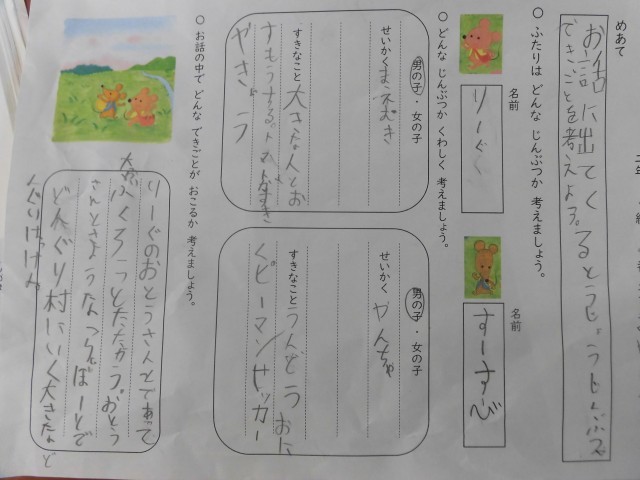 めあて
お話に出てくるとうじょうじんぶつで
できごとを考えよう。
○ ふたりは どんな じんぶつか 考えましょう。
名前
りーぐ
名前
すーすぴ
○ どんな じんぶつか くわしく 考えましょう。
男の子・女の子
せいかく まえむき
すきなこと 大きな人とお
すもうするトマトがすき
やきゅう
男の子・女の子
せいかく やんちゃ
すきなこと うんどう おに
くピーマン サッカー
○ お話の中で どんな できごとが おこるか 考えましょう。
りーぐのおとうさんとであって
大ふくろうとたたかう。おとう
さんとさようなつらばーとで
どんぐり村にいく大きなど
んぐりはっけん